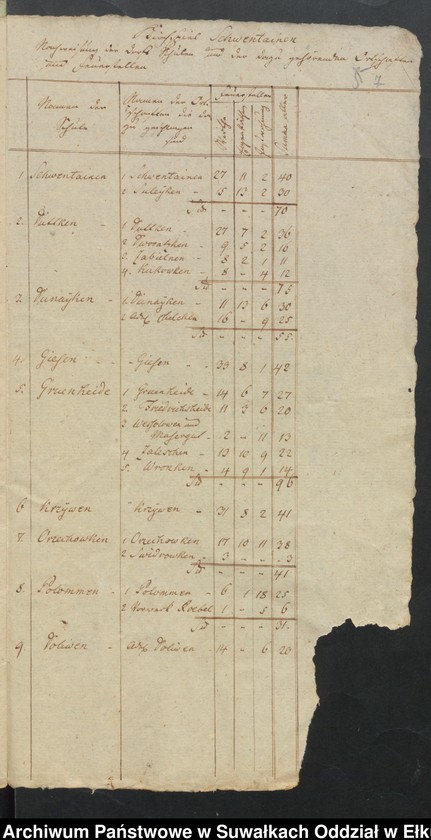 Kirchspiel Schwentainen
Nachweisung der Dorf Schulen und der dazu gehörenden Ortschaften
und Feuerstellen
7
Namen der Schule
Namen der Ortschaften die dazu geschlagen sind
Feuerstellen
Summa aller
1 Schwentainen 1 Schwentainen 27 11 2 40
2 Suleyken 5 13 2 30
Sa - - - 70
2. Duttken 1 Duttken 27 7 2 36
2 Dworatzken 9 5 2 16
3 Jabielnen 8 2 1 11
4. Kukowken 8 - 4 12
Sa - - - 75
3. Duneyken 1. Duneyken 11 13 6 30
2 Adl Chelchen 16 - 9 25
Sa - - - 55.
4. Giesen Giesen 33 8 1 42
5. Gruenheide 1 Gruenheide 14 6 7 27
2 Friedrichsheide 11 3 6 20
3 Wessolowen und
Masergut 2 - 11 13
4 Zaleschen 13 10 9 22
5. Wronken 4 9 1 14
Sa - - - 96
6 Krzywen Krzywen 31 8 2 41
7. Orzechowken 1 Orzechowken 17 10 11 38
2 Swidrowken 3 - - 3
Sa - - - 41
8. Polommen 1 Polommen 6 1 18 25
2 Vorwerk Roebel 1 - 5 6
Sa - - - 31.
9. Doliwen Adl Doliwen 14 - 6 20
Archiwum Państwowe w Suwałkach Oddział w Ełk